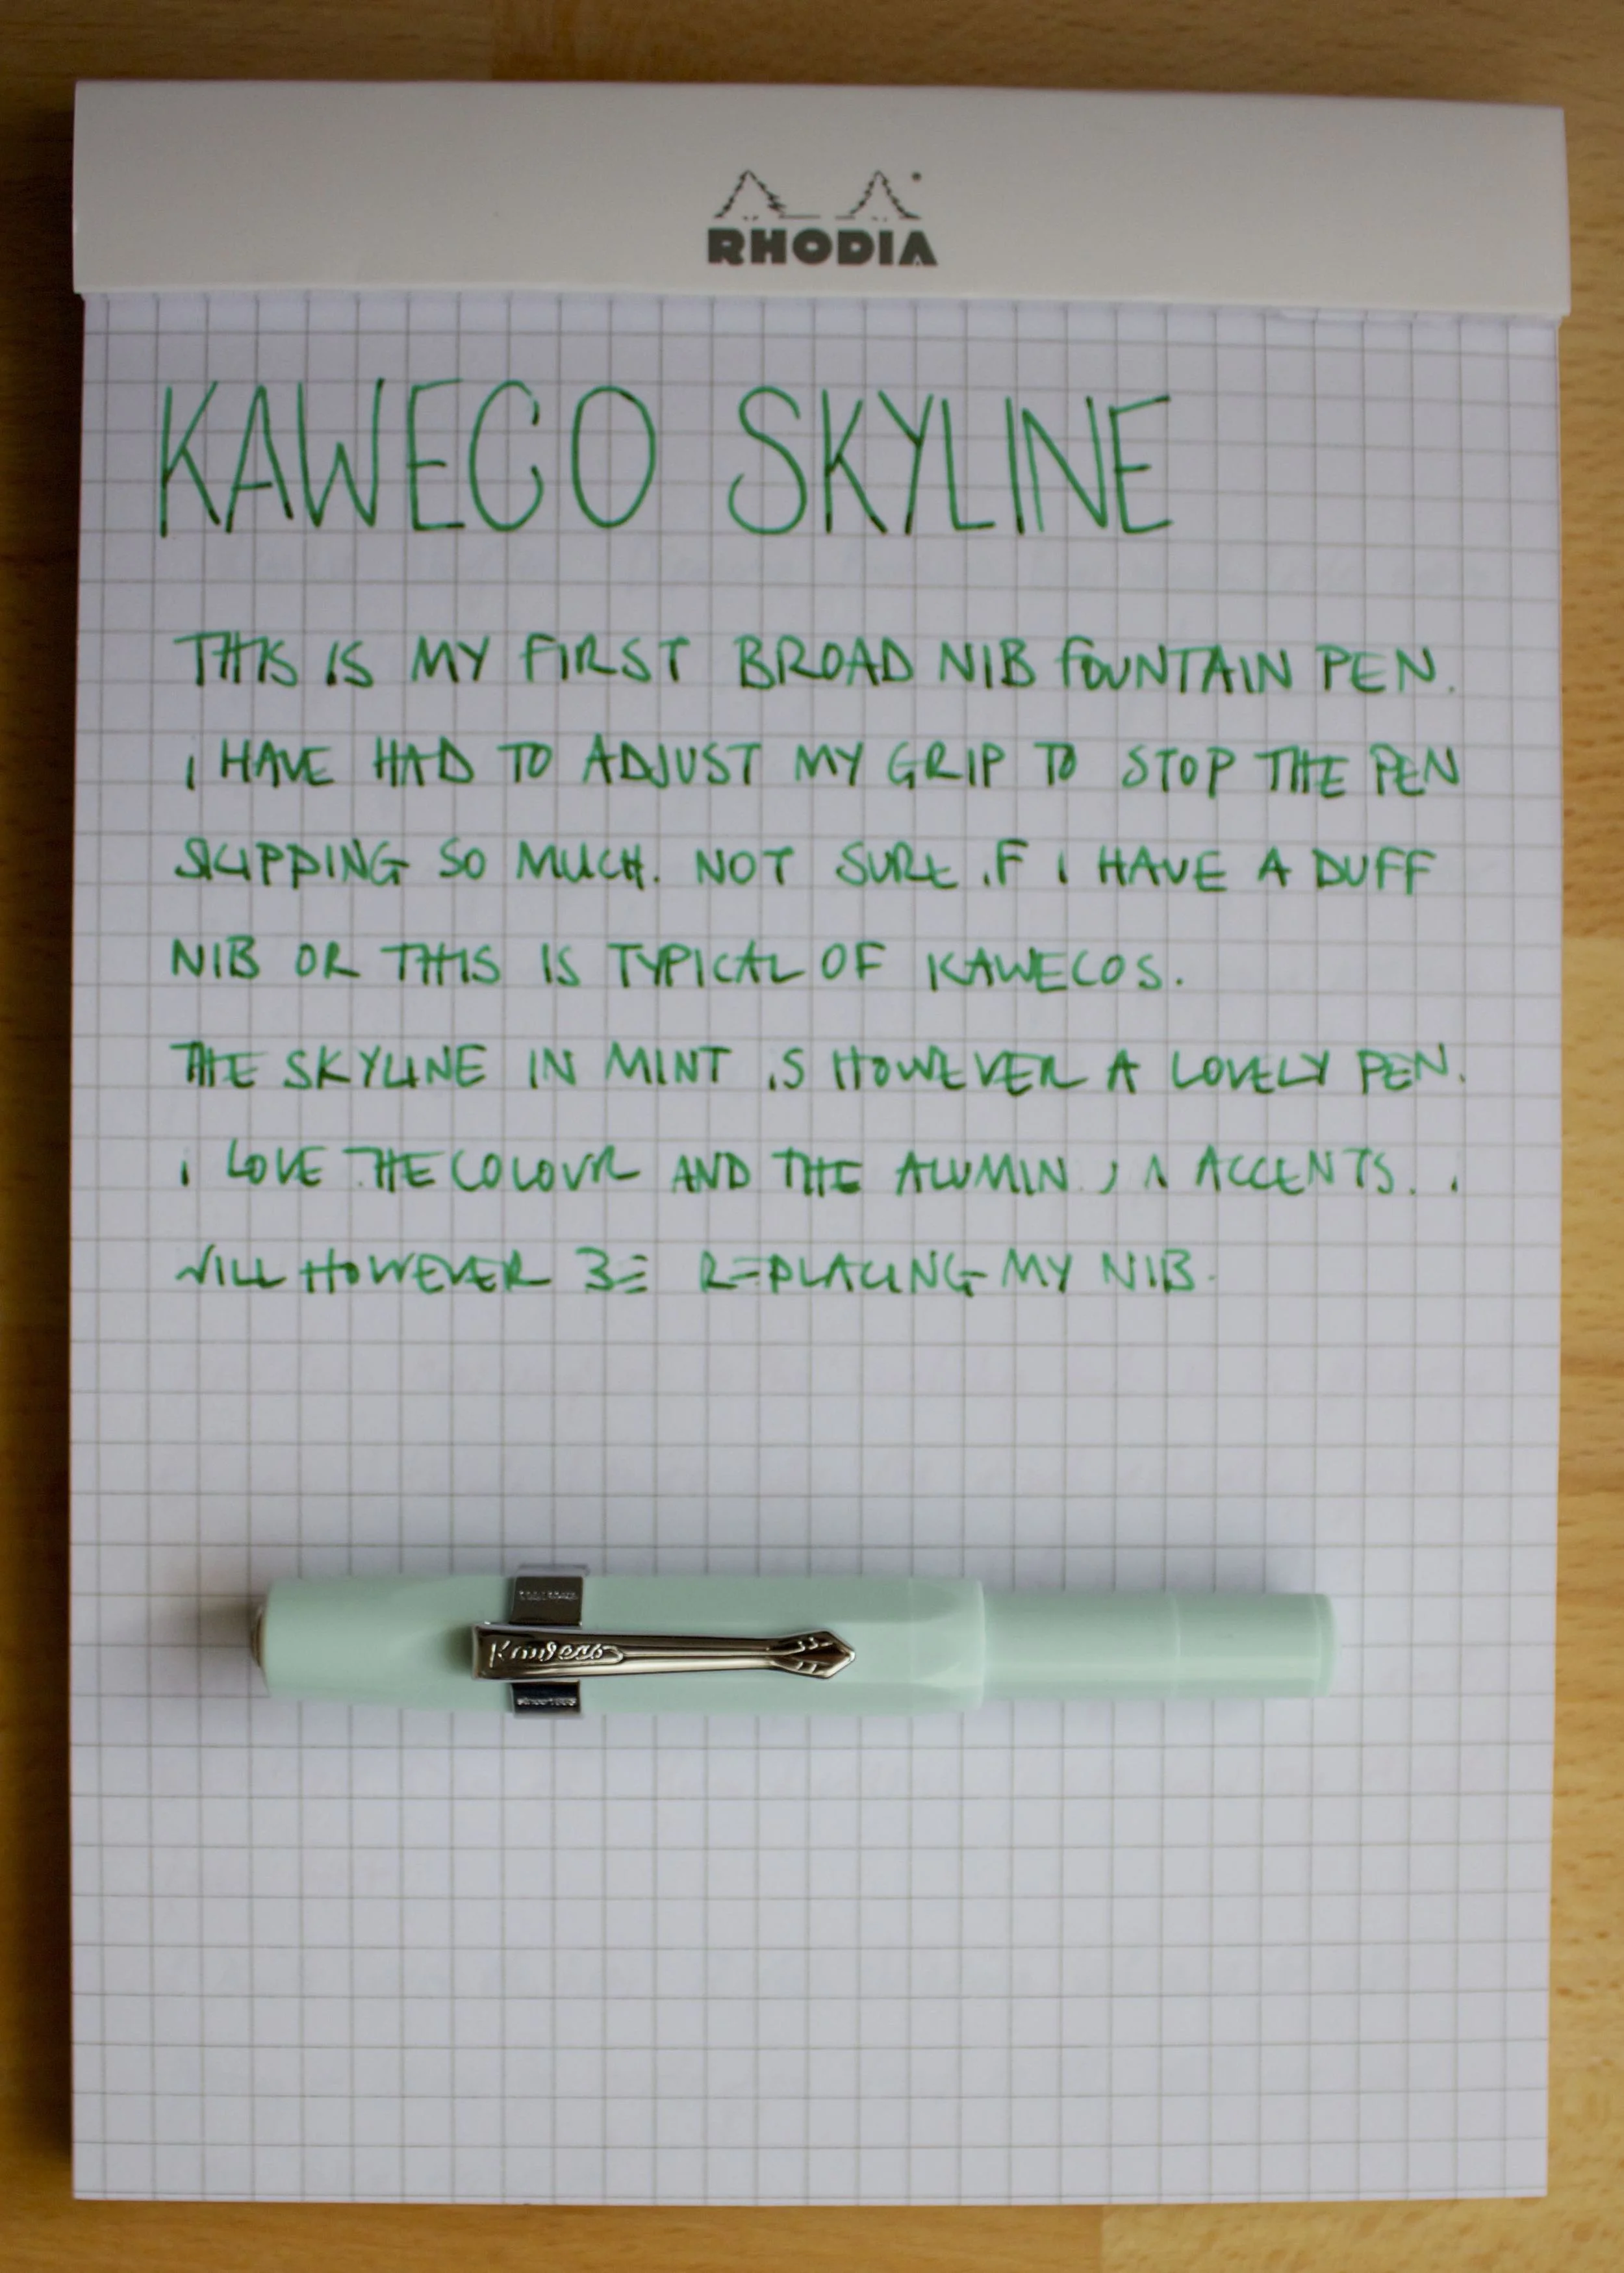 RHODIA
KAWECO SKYLINE
THIS IS MY FIRST BROAD NIB FOUNTAIN PEN.
I HAVE HAD TO ADJUST MY GRIP TO STOP THE PEN
SKIPPING SO MUCH. NOT SURE IF I HAVE A DUFF
NIB OR THIS IS TYPICAL OF KAWECOS.
THE SKYLINE IN MINT IS HOWEVER A LOVELY PEN.
I LOVE THE COLOUR AND THE ALUMINIUM ACCENTS. I
WILL HOWEVER BE REPLACING MY NIB.
Kaweco